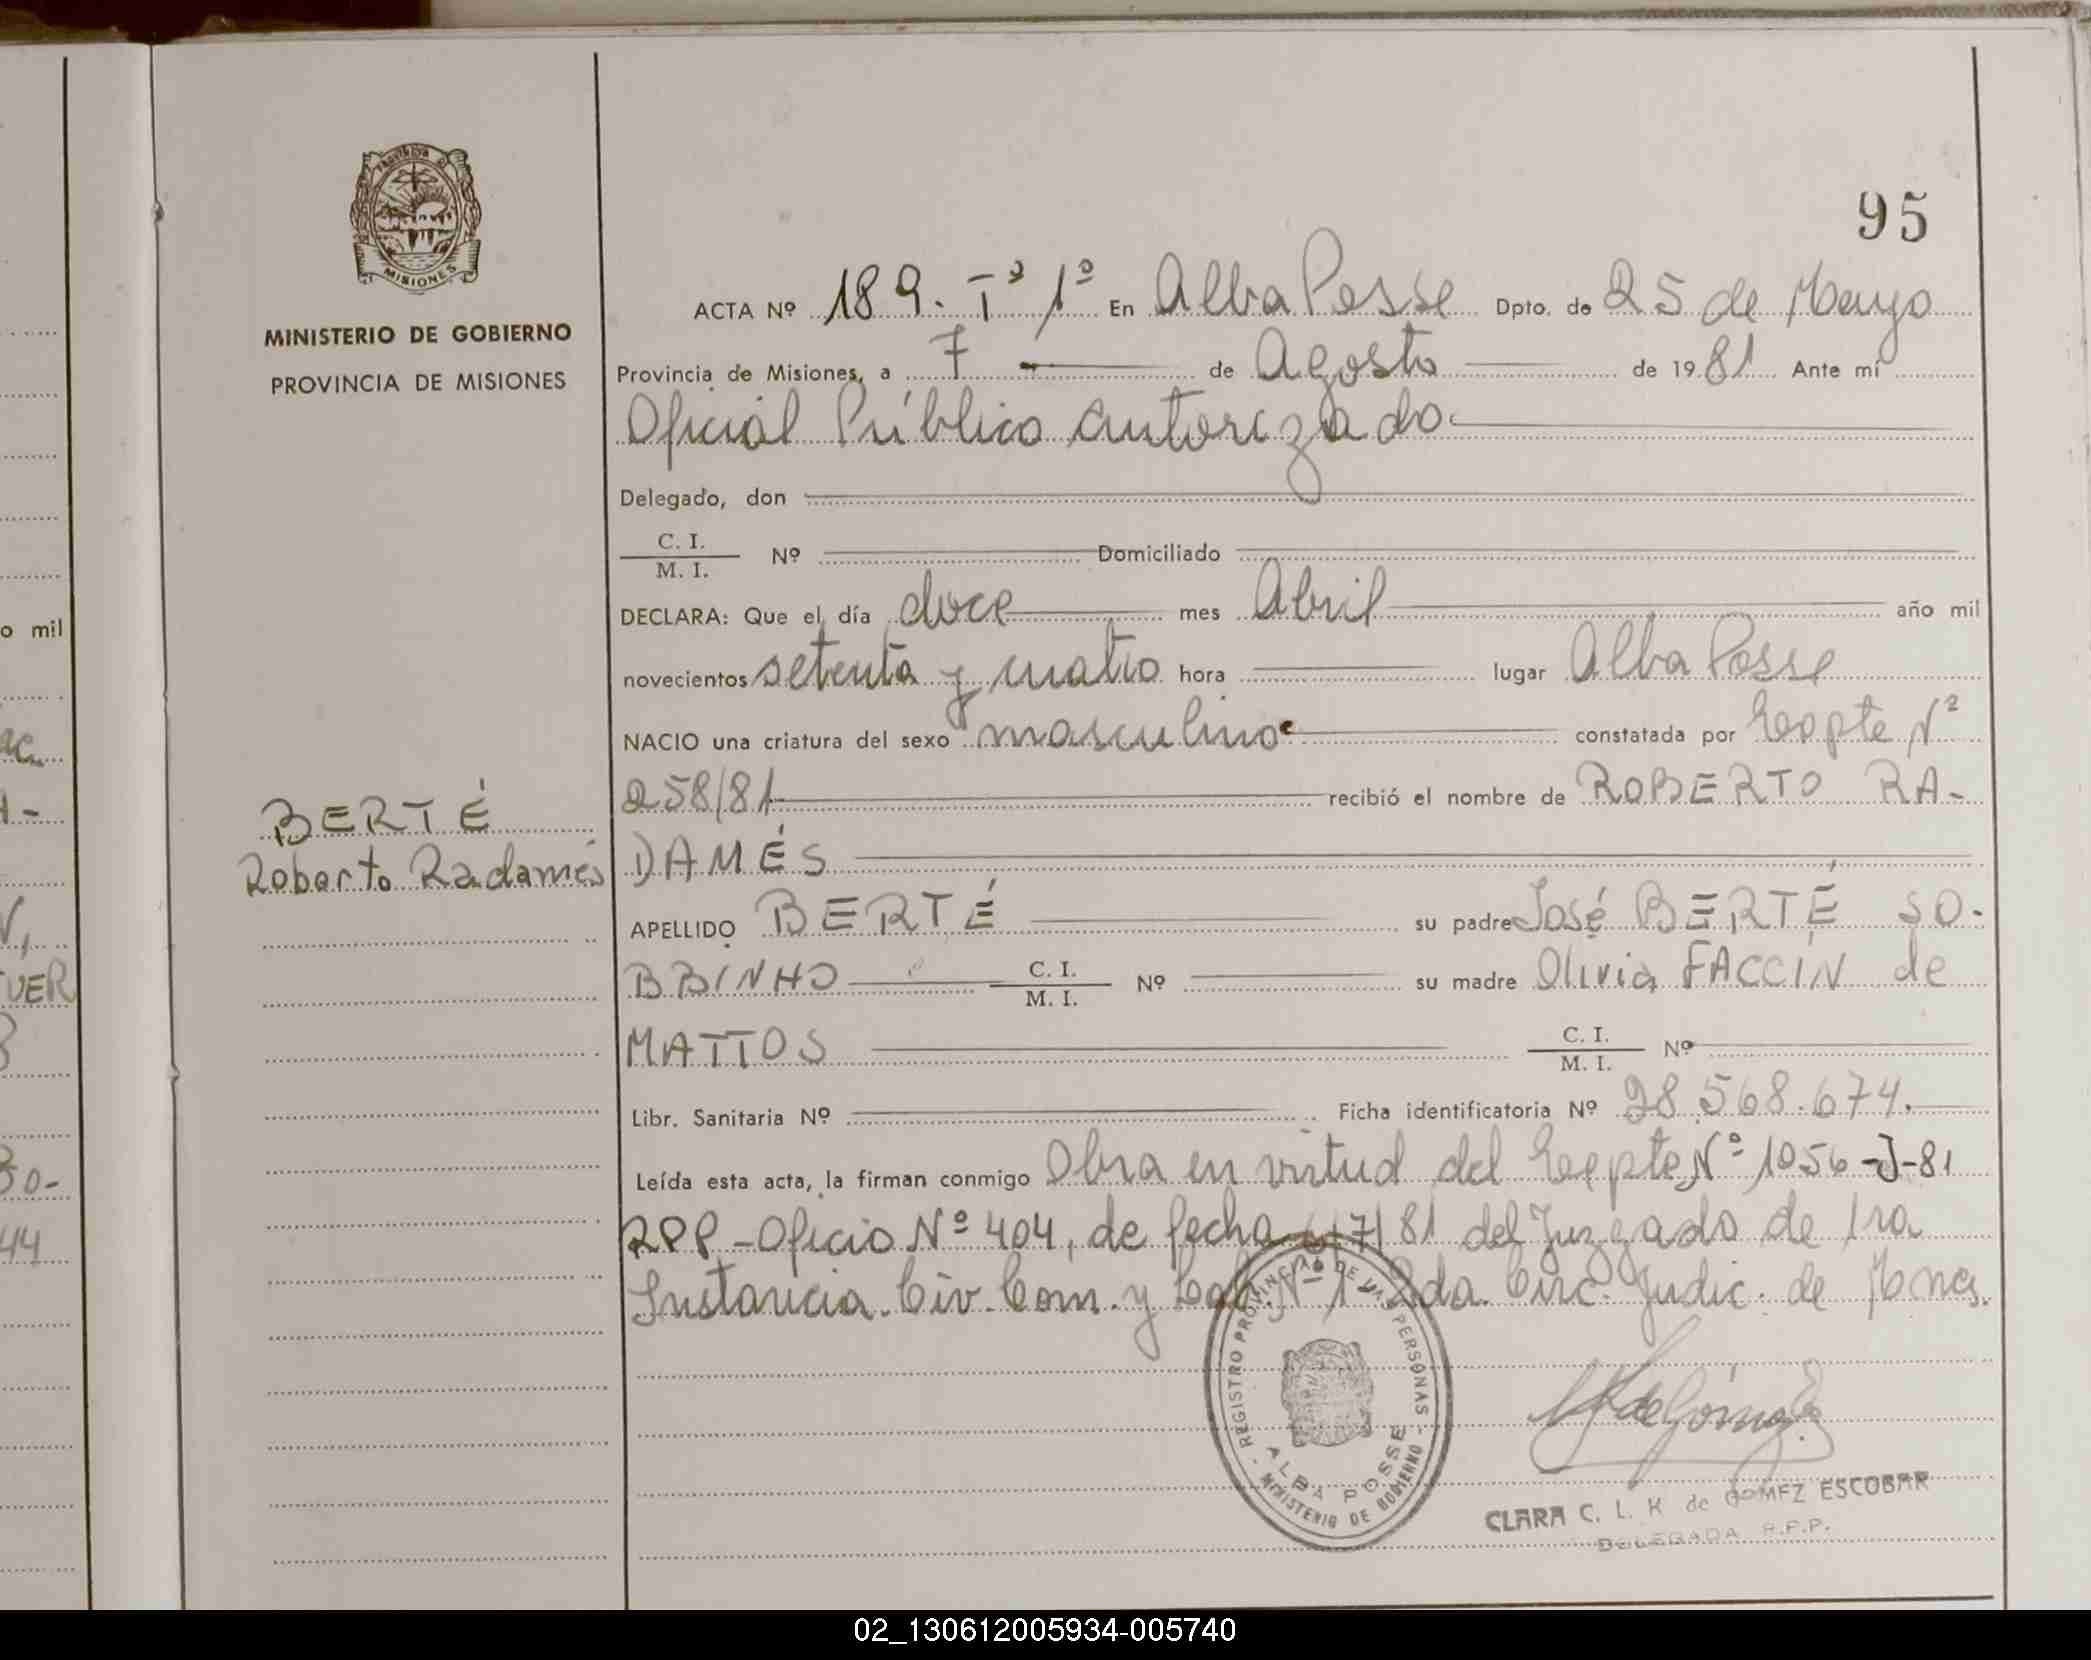 95
PROVINCIA DE MISIONES
MINISTERIO DE GOBIERNO
PROVINCIA DE MISIONES
ACTA Nº 189. Tº 1º En Alba Posse Dpto. de 25 de Mayo
Provincia de Misiones, a 7 de Agosto de 1981 Ante mí
Oficial Público autorizado
Delegado, don
C. I.
M. I. Nº Domiciliado
DECLARA: Que el día doce mes Abril año mil
novecientos setenta y cuatro hora lugar Alba Posse
NACIO una criatura del sexo masculino constatada por Expte Nº
258/81 recibió el nombre de ROBERTO RA-
BERTÉ
DAMÉS
Roberto Radamés
APELLIDO BERTÉ su padre José BERTÉ SO-
BBINHO C. I. M. I. Nº su madre Olivia FACCÍN de
MATTOS C. I. M. I. Nº
Libr. Sanitaria Nº Ficha identificatoria Nº 28.568.674.
Leída esta acta, la firman conmigo Obra en virtud del Expte Nº 1056-J-81
RPP-Oficio Nº 404, de fecha 6/7/81 del Juzgado de 1ra
Instancia. Civ. Com. y Lab. Nº 1-2da. Circ. Judic. de Mnes.
- REGISTRO PROVINCIAL DE LAS PERSONAS -
ALBA POSSE
MINISTERIO DE GOBIERNO
CLARA C. L. K de GOMEZ ESCOBAR
DELEGADA R.P.P.
o mil
ac.
A-
N,
UER
3
30-
44
02_130612005934-005740